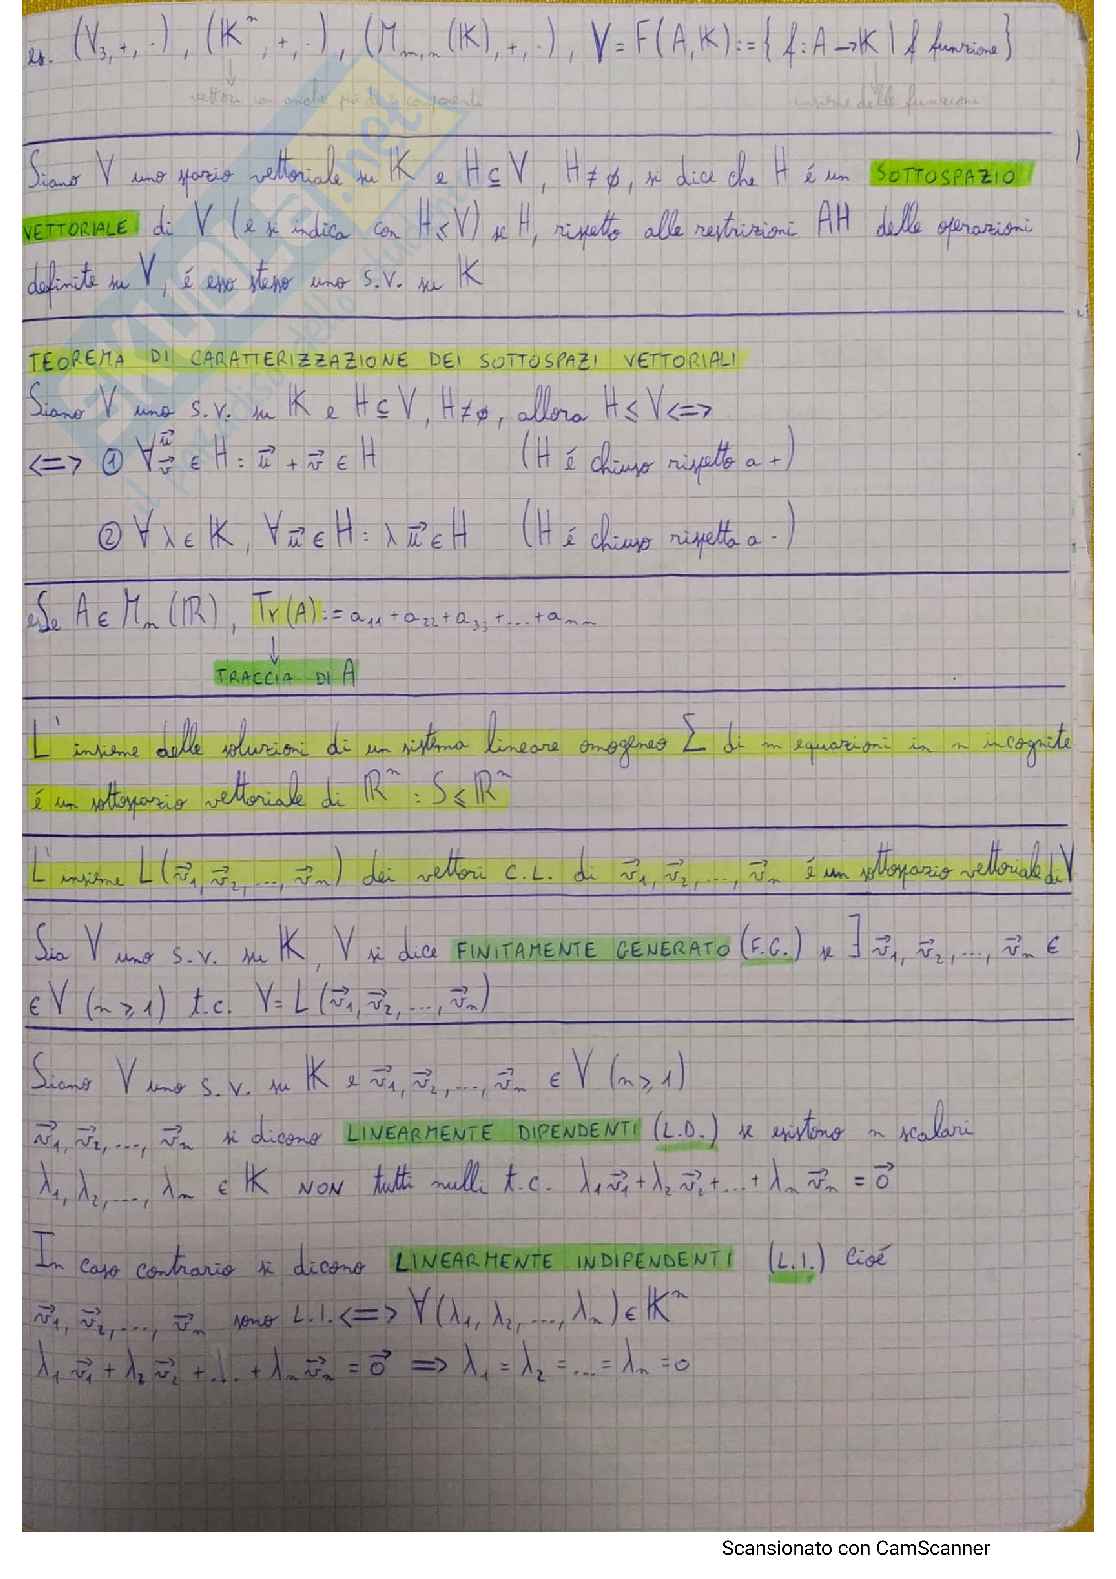 es. (V₃,+,·), (𝕂ⁿ,+,·), (M_{m,n}(𝕂),+,·), V=F(A,K):={f:A→K | f funzione}
vettori con anche più di 3 componenti insieme delle funzioni
Siano V uno spazio vettoriale su 𝕂 e H⊆V, H≠∅, si dice che H é un SOTTOSPAZIO
VETTORIALE di V (e si indica con H≤V) se H, rispetto alle restrizioni AH delle operazioni
definite su V, é esso stesso uno s.v. su 𝕂
TEOREMA DI CARATTERIZZAZIONE DEI SOTTOSPAZI VETTORIALI
Siano V uno s.v. su 𝕂 e H⊆V, H≠∅, allora H≤V<=>
<=> ① ∀u⃗ v⃗ ∈ H : u⃗ + v⃗ ∈ H (H é chiuso rispetto a +)
② ∀λ∈𝕂, ∀u⃗∈H : λu⃗∈H (H é chiuso rispetto a ·)
es Se A∈Mₙ(ℝ), Tr(A):=a₁₁+a₂₂+a₃₃+...+aₙₙ
↓
TRACCIA DI A
L'insieme delle soluzioni di un sistema lineare omogeneo Σ di m equazioni in n incognite
é un sottospazio vettoriale di ℝⁿ : S≤ℝⁿ
L'insieme L(v⃗₁,v⃗₂,...,v⃗ₙ) dei vettori C.L. di v⃗₁,v⃗₂,...,v⃗ₙ é un sottospazio vettoriale di V
Sia V uno s.v. su 𝕂, V si dice FINITAMENTE GENERATO (F.G.) se ∃ v⃗₁,v⃗₂,...,v⃗ₙ ∈
∈V (n≥1) t.c. V=L(v⃗₁,v⃗₂,...,v⃗ₙ)
Siano V uno s.v. su 𝕂 e v⃗₁,v⃗₂,...,v⃗ₙ ∈ V (n≥1)
v⃗₁,v⃗₂,...,v⃗ₙ si dicono LINEARMENTE DIPENDENTI (L.D.) se esistono n scalari
λ₁,λ₂,...,λₙ ∈ 𝕂 NON tutti nulli t.c. λ₁v⃗₁+λ₂v⃗₂+...+λₙv⃗ₙ=0⃗
In caso contrario si dicono LINEARMENTE INDIPENDENTI (L.I.) Cioé
v⃗₁,v⃗₂,...,v⃗ₙ sono L.I.<=> ∀(λ₁,λ₂,...,λₙ)∈𝕂ⁿ
λ₁v⃗₁+λ₂v⃗₂+...+λₙv⃗ₙ=0⃗ => λ₁=λ₂=...=λₙ=0
Scansionato con CamScanner